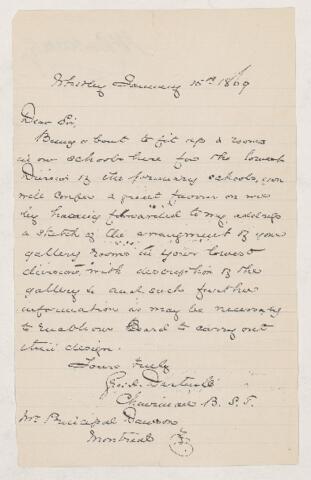 Whitby January 15th 1869
Dear Sir,
Being about to fit up a rooms
in our schools here for the lowest
Division of the primary schools, you
will confer a great favour on me
by having forwarded to my address
a sketch of the arrangment of your
gallery rooms in your lowest
division, with description of the
gallery &c and such further
information as may be necessary
to enable our Board to carry out
their design.
Yours truly
Chairman B. S. T.
Mr Principal Dawson
Montreal